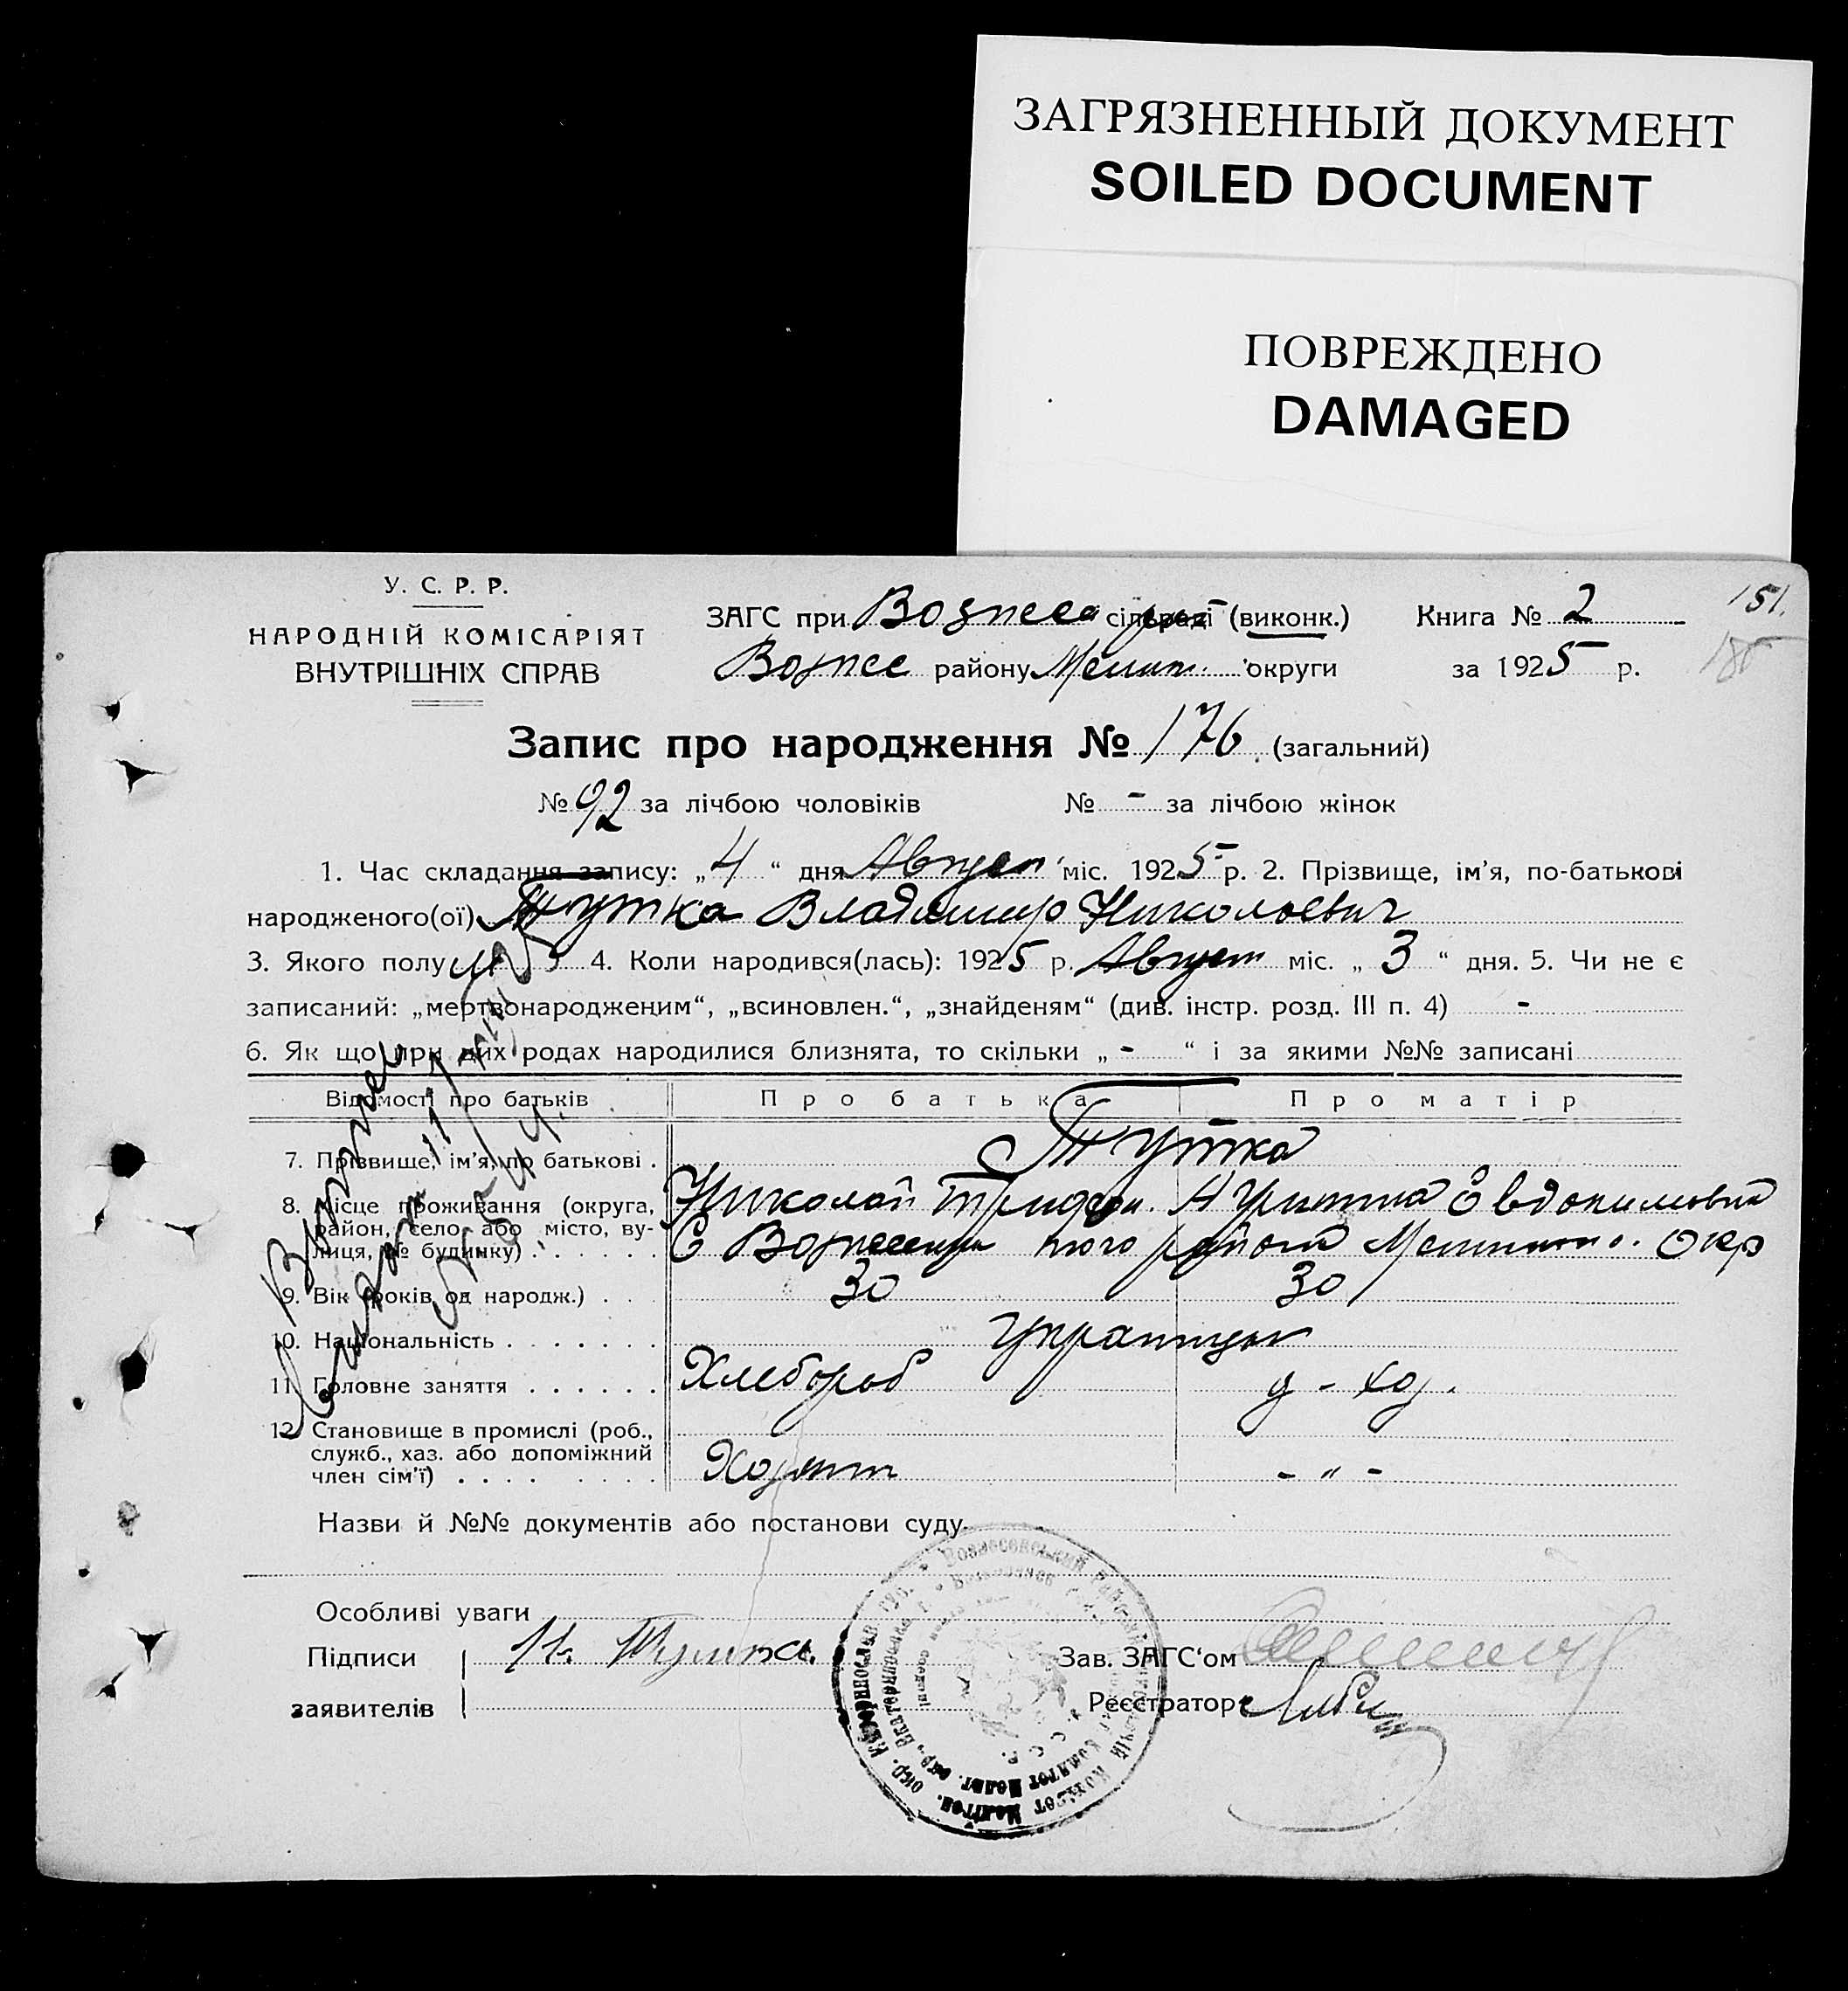 ЗАГРЯЗНЕННЫЙ ДОКУМЕНТ
SOILED DOCUMENT
ПОВРЕЖДЕНО
DAMAGED
151.
У. С. Р. Р.
НАРОДНІЙ КОМІСАРІЯТ
ВНУТРІШНІХ СПРАВ
ЗАГС при Вознесе сільраді (виконк.) Книга № 2
Вознес району Мелит. округи за 1925 р.
Запис про народження № 176 (загальний)
№ 92 за лічбою чоловіків № - за лічбою жінок
1. Час складання запису: „4“ дня Август міс. 1925 р. 2. Прізвище, ім'я, по-батькові
народженого(ої) Тутка Владимир Николаевич
3. Якого полу м 4. Коли народився(лась): 1925 р. Август міс. „3“ дня. 5. Чи не є
записаний: „мертвонародженим“, „всиновлен.“, „знайденям“ (див. інстр. розд. III п. 4) -
6. Як що при цих родах народилися близнята, то скільки „-“ і за якими №№ записані
Відомості про батьків Про батька Про матір
7. Прізвище, ім'я, по батькові . Тутка
8. Місце проживання (округа, Николай Евдокимовна
район, село або місто, ву- С Вознесен района Мелит. Окр
лиця, № будинку) . . . . . .
9. Вік (років од народж.) . . . 30 30
10. Національність . . . . . . . Украинцы
11. Головне заняття . . . . . . Хлебороб д - хоз.
12. Становище в промислі (роб.,
служб., хаз. або допоміжний
член сім'ї) . . . . Хозяин - „ -
Назви й №№ документів або постанови суду
Особливі уваги
Підписи Н. Тутка Зав. ЗАГС'ом
заявителів Реєстратор